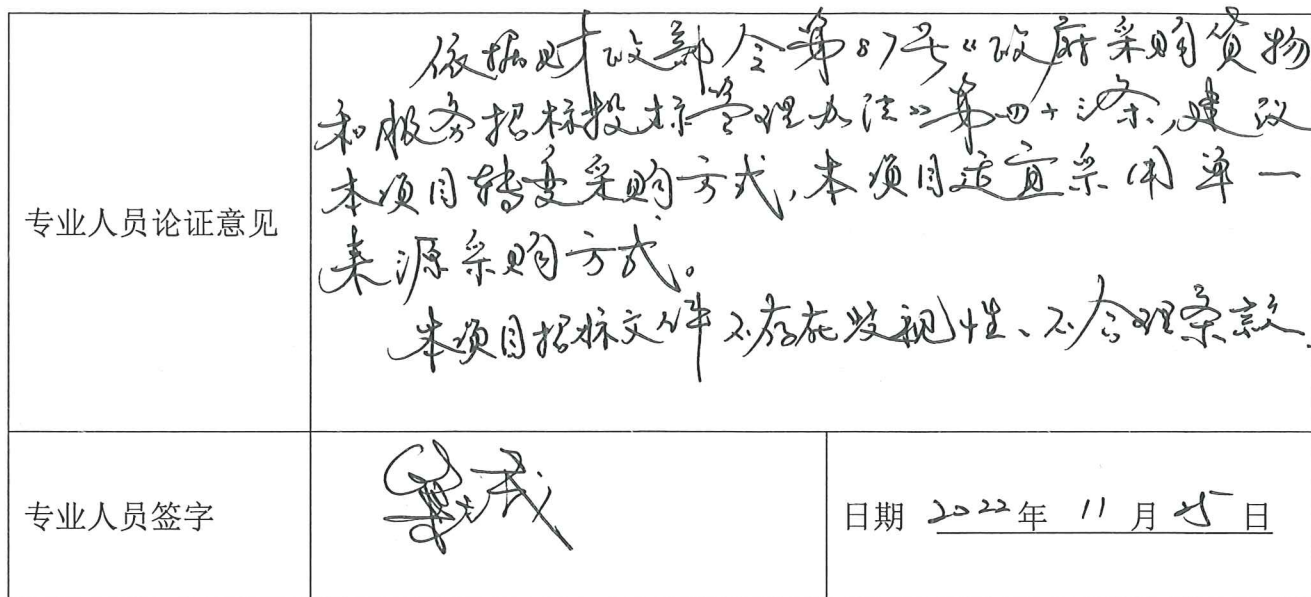 专业人员论证意见
依据财政部令第87号《政府采购货物
和服务招标投标管理办法》第四十三条,建议
本项目转变采购方式,本项目适宜采用单一
来源采购方式。
本项目招标文件不存在歧视性、不合理条款.
专业人员签字
日期 2022年 11月 25日